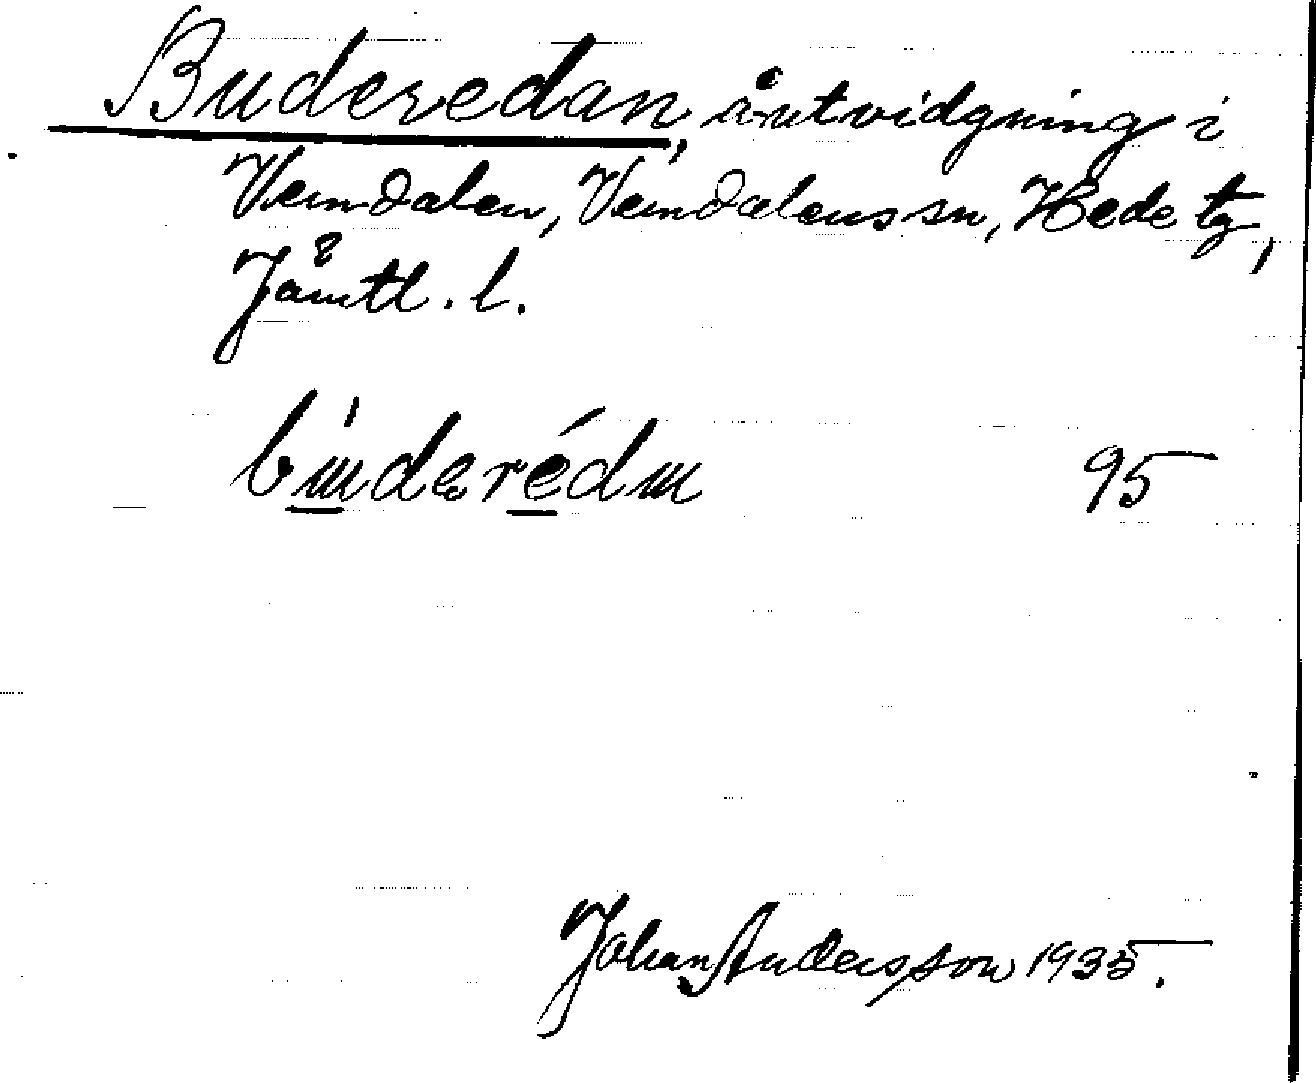 Buderedan, åutvidgning i
Vemdalen, Vemdalens sn, Hede tg,
Jämtl. l.
95
Johan Andersson 1935.